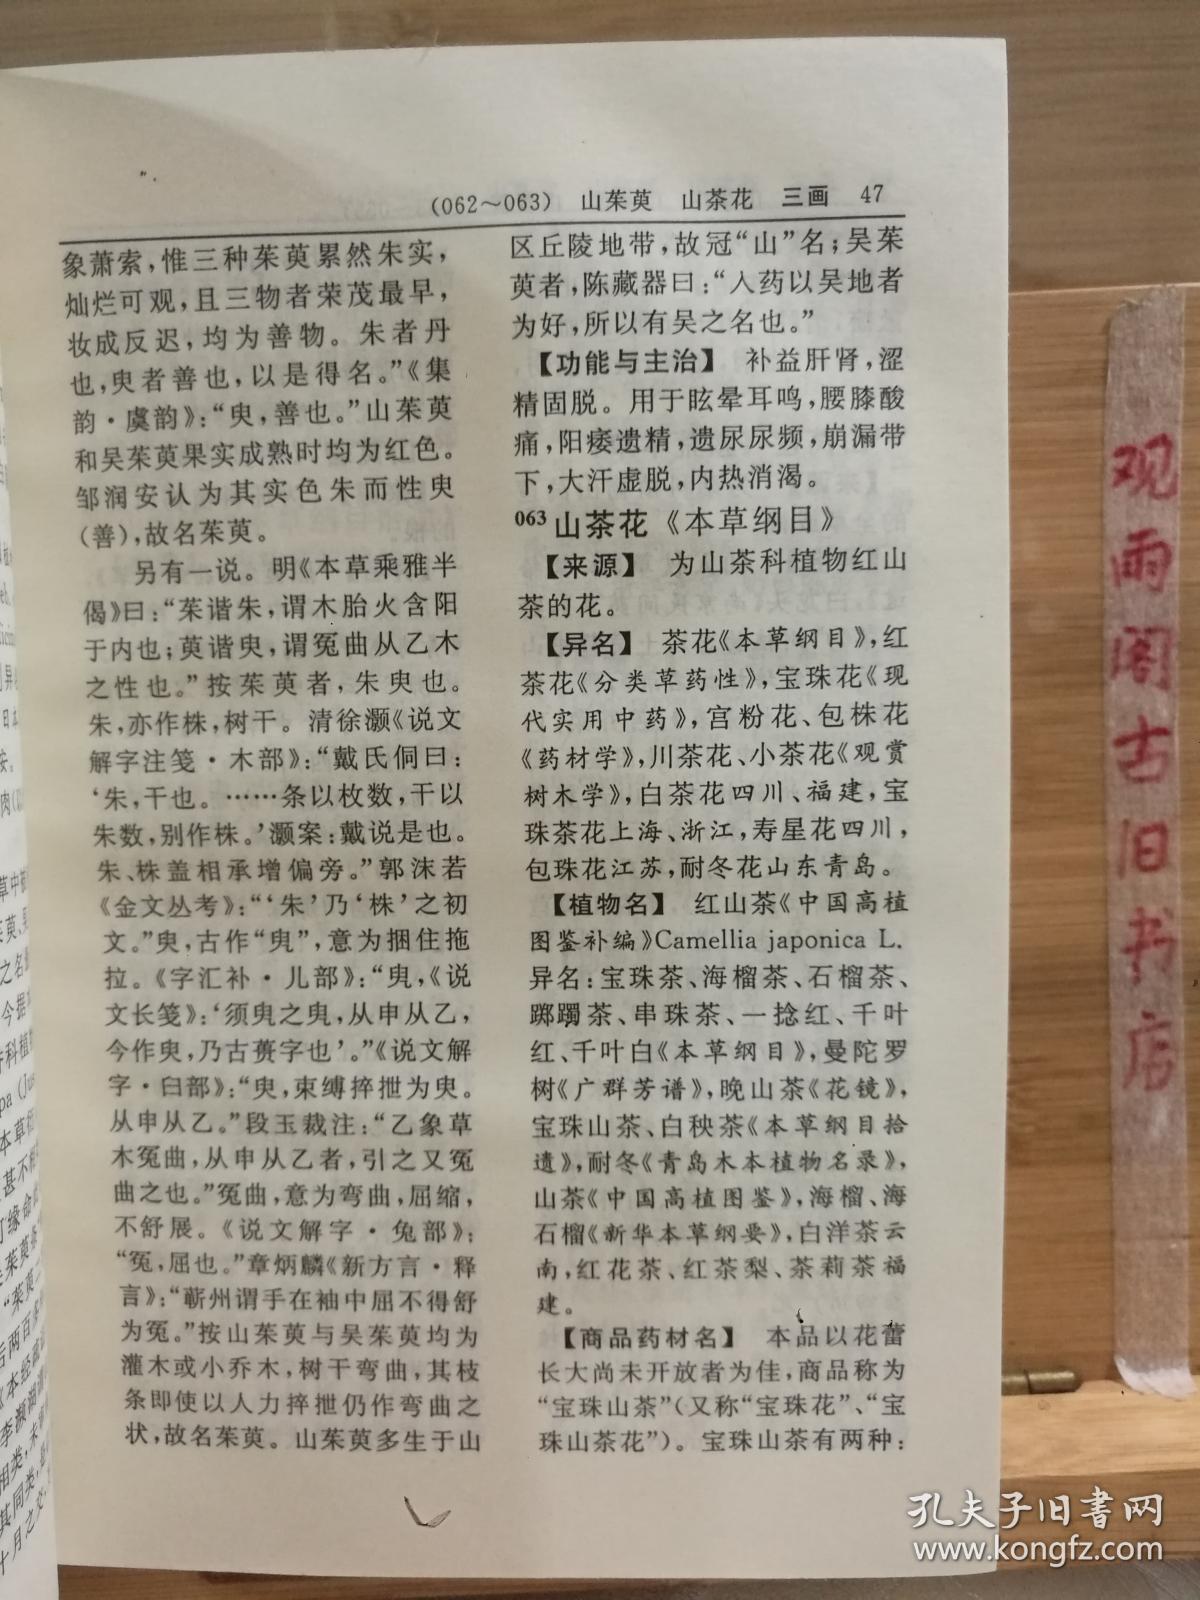 (062～063) 山茱萸 山茶花 三画 47
象萧索，惟三种茱萸累然朱实，
灿烂可观，且三物者荣茂最早，
妆成反迟，均为善物。朱者丹
也，臾者善也，以是得名。”《集
韵·虞韵》：“臾，善也。”山茱萸
和吴茱萸果实成熟时均为红色。
邹润安认为其实色朱而性臾
(善)，故名茱萸。
另有一说。明《本草乘雅半
偈》曰：“茱谐朱，谓木胎火含阳
于内也；萸谐臾，谓冤曲从乙木
之性也。”按茱萸者，朱臾也。
朱，亦作株，树干。清徐灏《说文
解字注笺·木部》：“戴氏侗曰：
‘朱，干也。……条以枚数，干以
朱数，别作株。’灏案：戴说是也。
朱、株盖相承增偏旁。”郭沫若
《金文丛考》：“‘朱’乃‘株’之初
文。”臾，古作“㬰”，意为捆住拖
拉。《字汇补·儿部》：“㬰，《说
文长笺》：‘须㬰之㬰，从申从乙，
今作臾，乃古蒉字也’。”《说文解
字·臼部》：“臾，束缚捽抴为臾。
从申从乙。”段玉裁注：“乙象草
木冤曲，从申从乙者，引之又冤
曲之也。”冤曲，意为弯曲，屈缩，
不舒展。《说文解字·兔部》：
“冤，屈也。”章炳麟《新方言·释
言》：“蕲州谓手在袖中屈不得舒
为冤。”按山茱萸与吴茱萸均为
灌木或小乔木，树干弯曲，其枝
条即使以人力捽抴仍作弯曲之
状，故名茱萸。山茱萸多生于山
区丘陵地带，故冠“山”名；吴茱
萸者，陈藏器曰：“入药以吴地者
为好，所以有吴之名也。”
【功能与主治】 补益肝肾，涩
精固脱。用于眩晕耳鸣，腰膝酸
痛，阳痿遗精，遗尿尿频，崩漏带
下，大汗虚脱，内热消渴。
063 山茶花《本草纲目》
【来源】 为山茶科植物红山
茶的花。
【异名】 茶花《本草纲目》，红
茶花《分类草药性》，宝珠花《现
代实用中药》，宫粉花、包株花
《药材学》，川茶花、小茶花《观赏
树木学》，白茶花四川、福建，宝
珠茶花上海、浙江，寿星花四川，
包珠花江苏，耐冬花山东青岛。
【植物名】 红山茶《中国高植
图鉴补编》Camellia japonica L.
异名：宝珠茶、海榴茶、石榴茶、
踯躅茶、串珠茶、一捻红、千叶
红、千叶白《本草纲目》，曼陀罗
树《广群芳谱》，晚山茶《花镜》，
宝珠山茶、白秧茶《本草纲目拾
遗》，耐冬《青岛木本植物名录》，
山茶《中国高植图鉴》，海榴、海
石榴《新华本草纲要》，白洋茶云
南，红花茶、红茶梨、茶莉茶福
建。
【商品药材名】 本品以花蕾
长大尚未开放者为佳，商品称为
“宝珠山茶”(又称“宝珠花”、“宝
珠山茶花”)。宝珠山茶有两种：
观雨阁古旧书店
孔夫子旧书网
www.kongfz.com